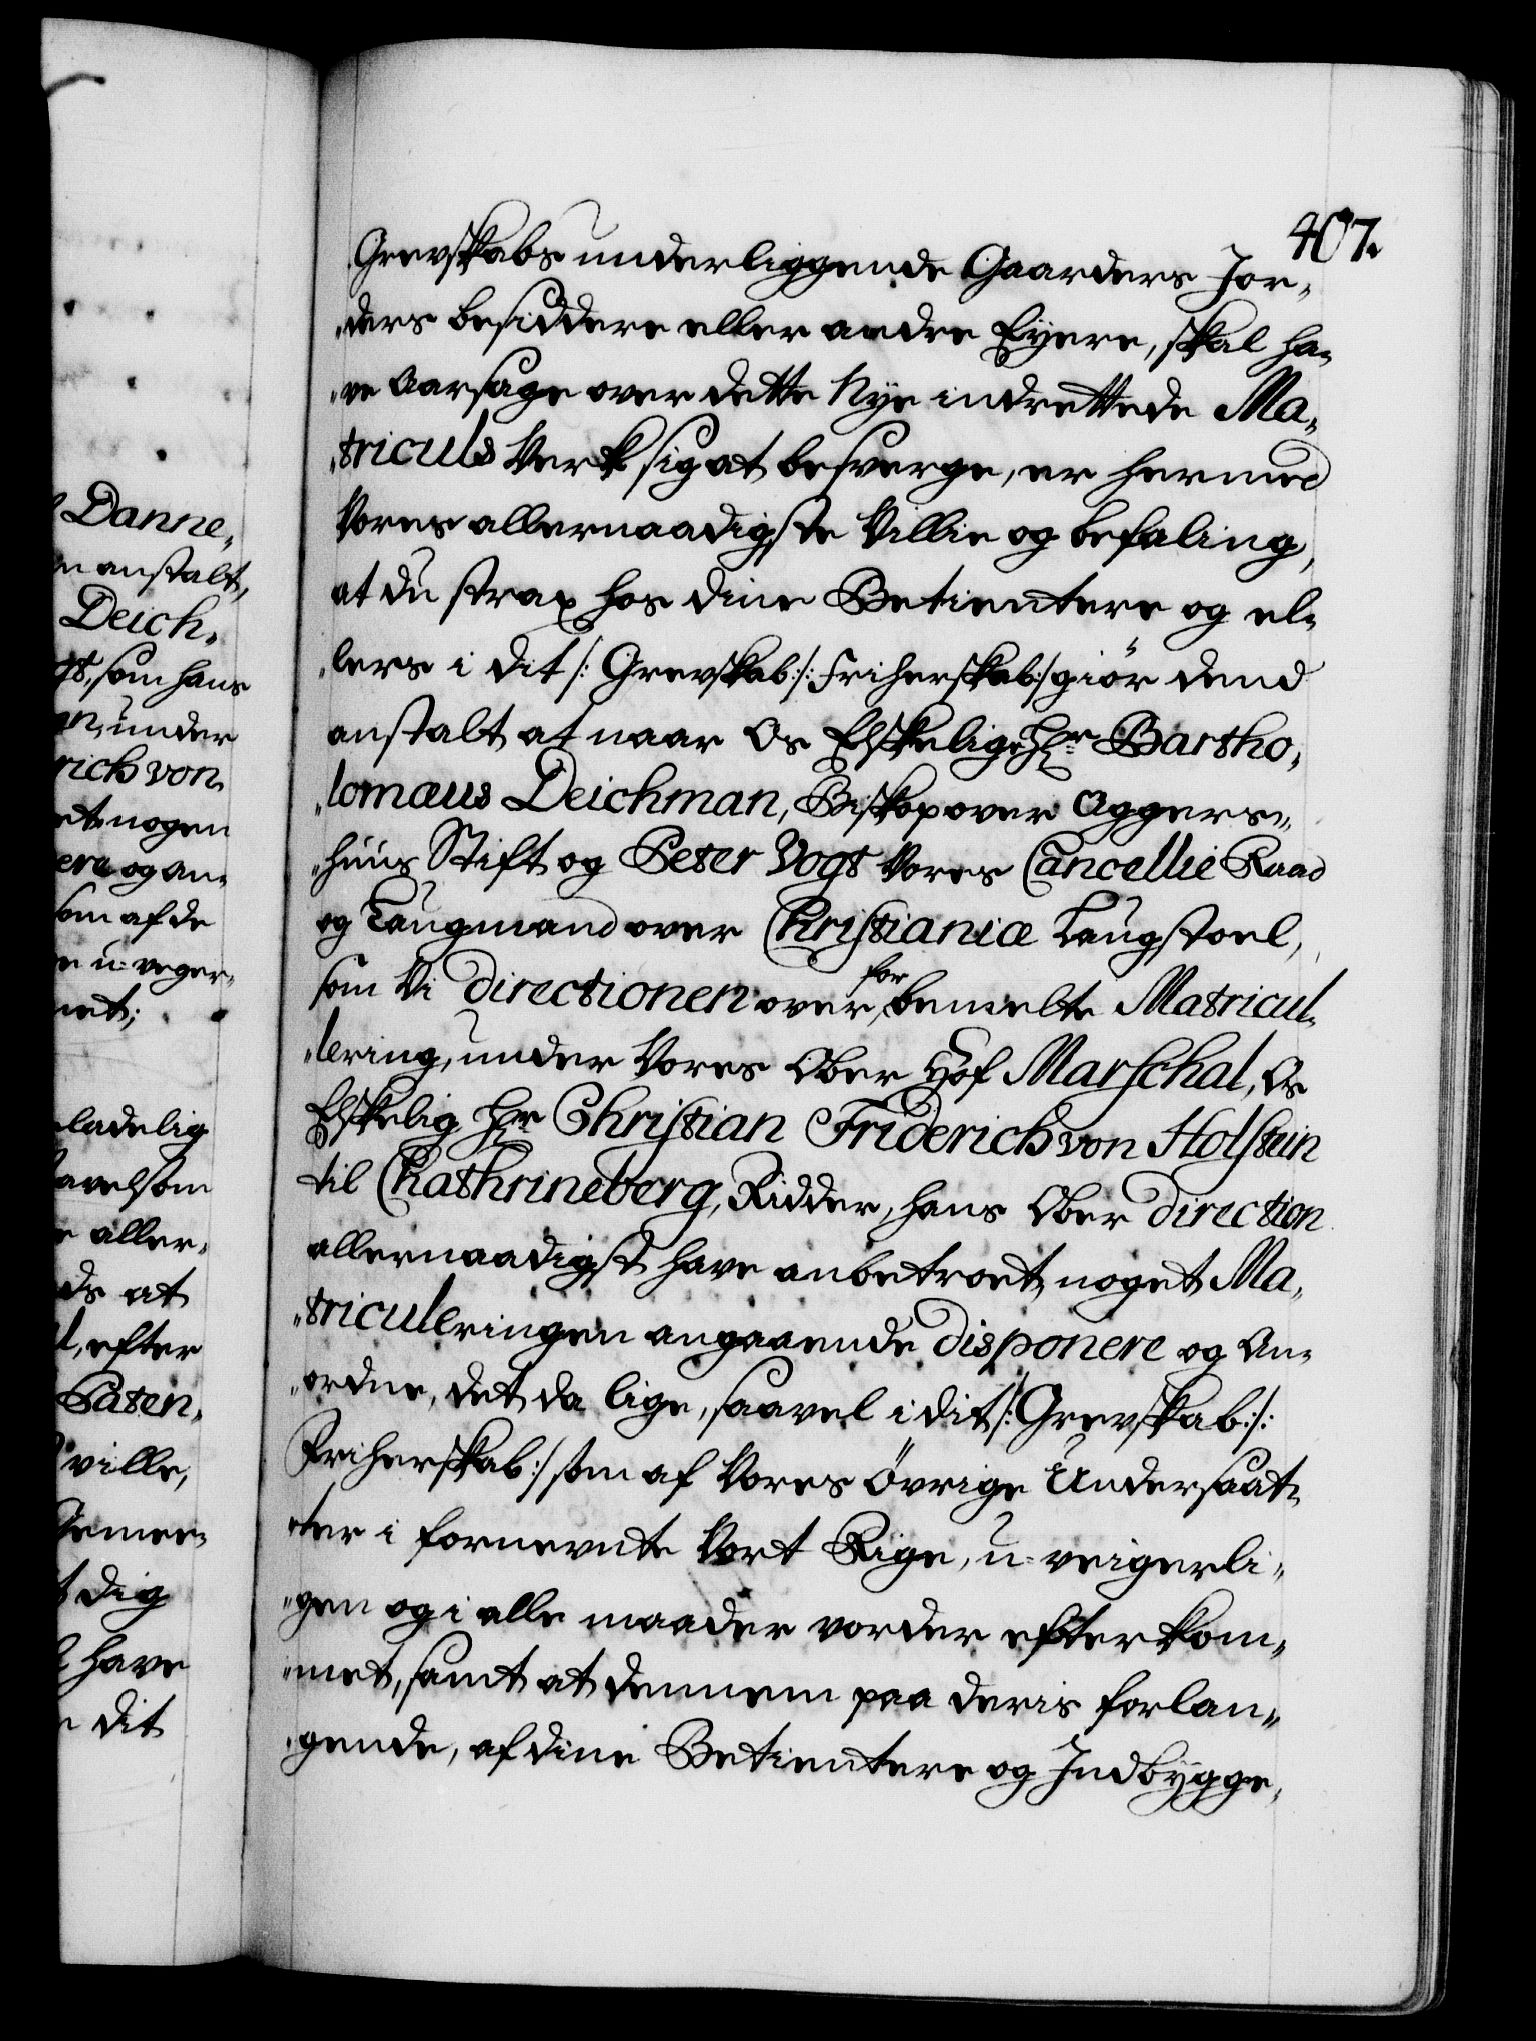 407.
Grevskabs underliggende Gaarders Jor-
ders besiddere eller andre Eyere, skal ha-
ve Aarsage over dette Nye indrettede Ma-
triculs Verk sig at besverge, er hermed
Vores allernaadigste Villie og befaling,
at du strax hos dine Betientere og el-
lers i dit /: Grevskab:/: Friherskab:/ giör dend
anstalt at naar Os Elskelige Hr Bartho-
lomæus Deichman, Biskop over Aggers-
huus Stift og Peter Vogt Vores Cancellie Raad
og Laugmand over Christianiæ Laugstoel,
som Vi directionen over forbemelte Matricul-
lering, under Vores Ober Hof Marschal, Os
Elskelig Hr Christian Friderich von Holstein
til Chathrineberg, Ridder, hans Ober direction
allernaadigst have anbetroet, noget Ma-
triculeringen angaaende disponere og An-
ordne, det da lige, saavel i dit /: Grevskab:/:
Friherskab:/ som af Vores Övrige Undersaat-
ter i fornevnte Vort Rige, u-veigerli-
gen og i alle maader vorder efterkom-
met, samt at dennem paa deris forlan-
gende, af dine Betientere og Indbygge-
Danne-
anstalt,
Deich-
som hans
under
rich von
nogen
og an-
som af de
u-veger-
ladelig
aller-
at
efter
Paten-
ville,
dig
have
dit